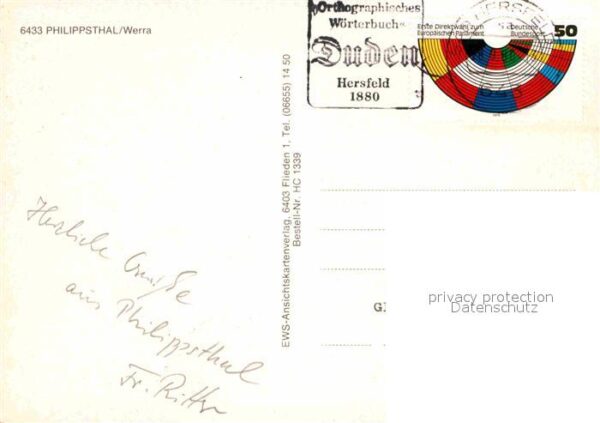 6433 PHILIPPSTHAL/Werra
Herzliche Grüße
aus Philippsthal
Fr. Ritter
EWS-Ansichtskartenverlag, 6403 Flieden 1, Tel. (06655) 14 50
Bestell-Nr. HC 1339
"Orthographisches
Wörterbuch"
Duden
Hersfeld
1880
HERSFELD
Erste Direktwahl zum
Europäischen Parlament
Deutsche
Bundespost
50
privacy protection
Datenschutz